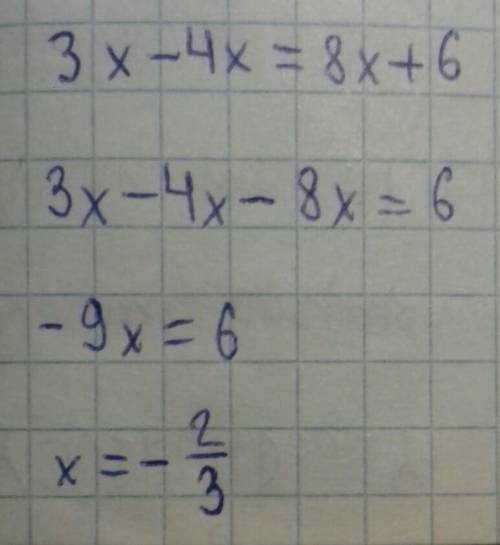 3x - 4x = 8x + 6
3x - 4x - 8x = 6
- 9x = 6
x = - 2/3